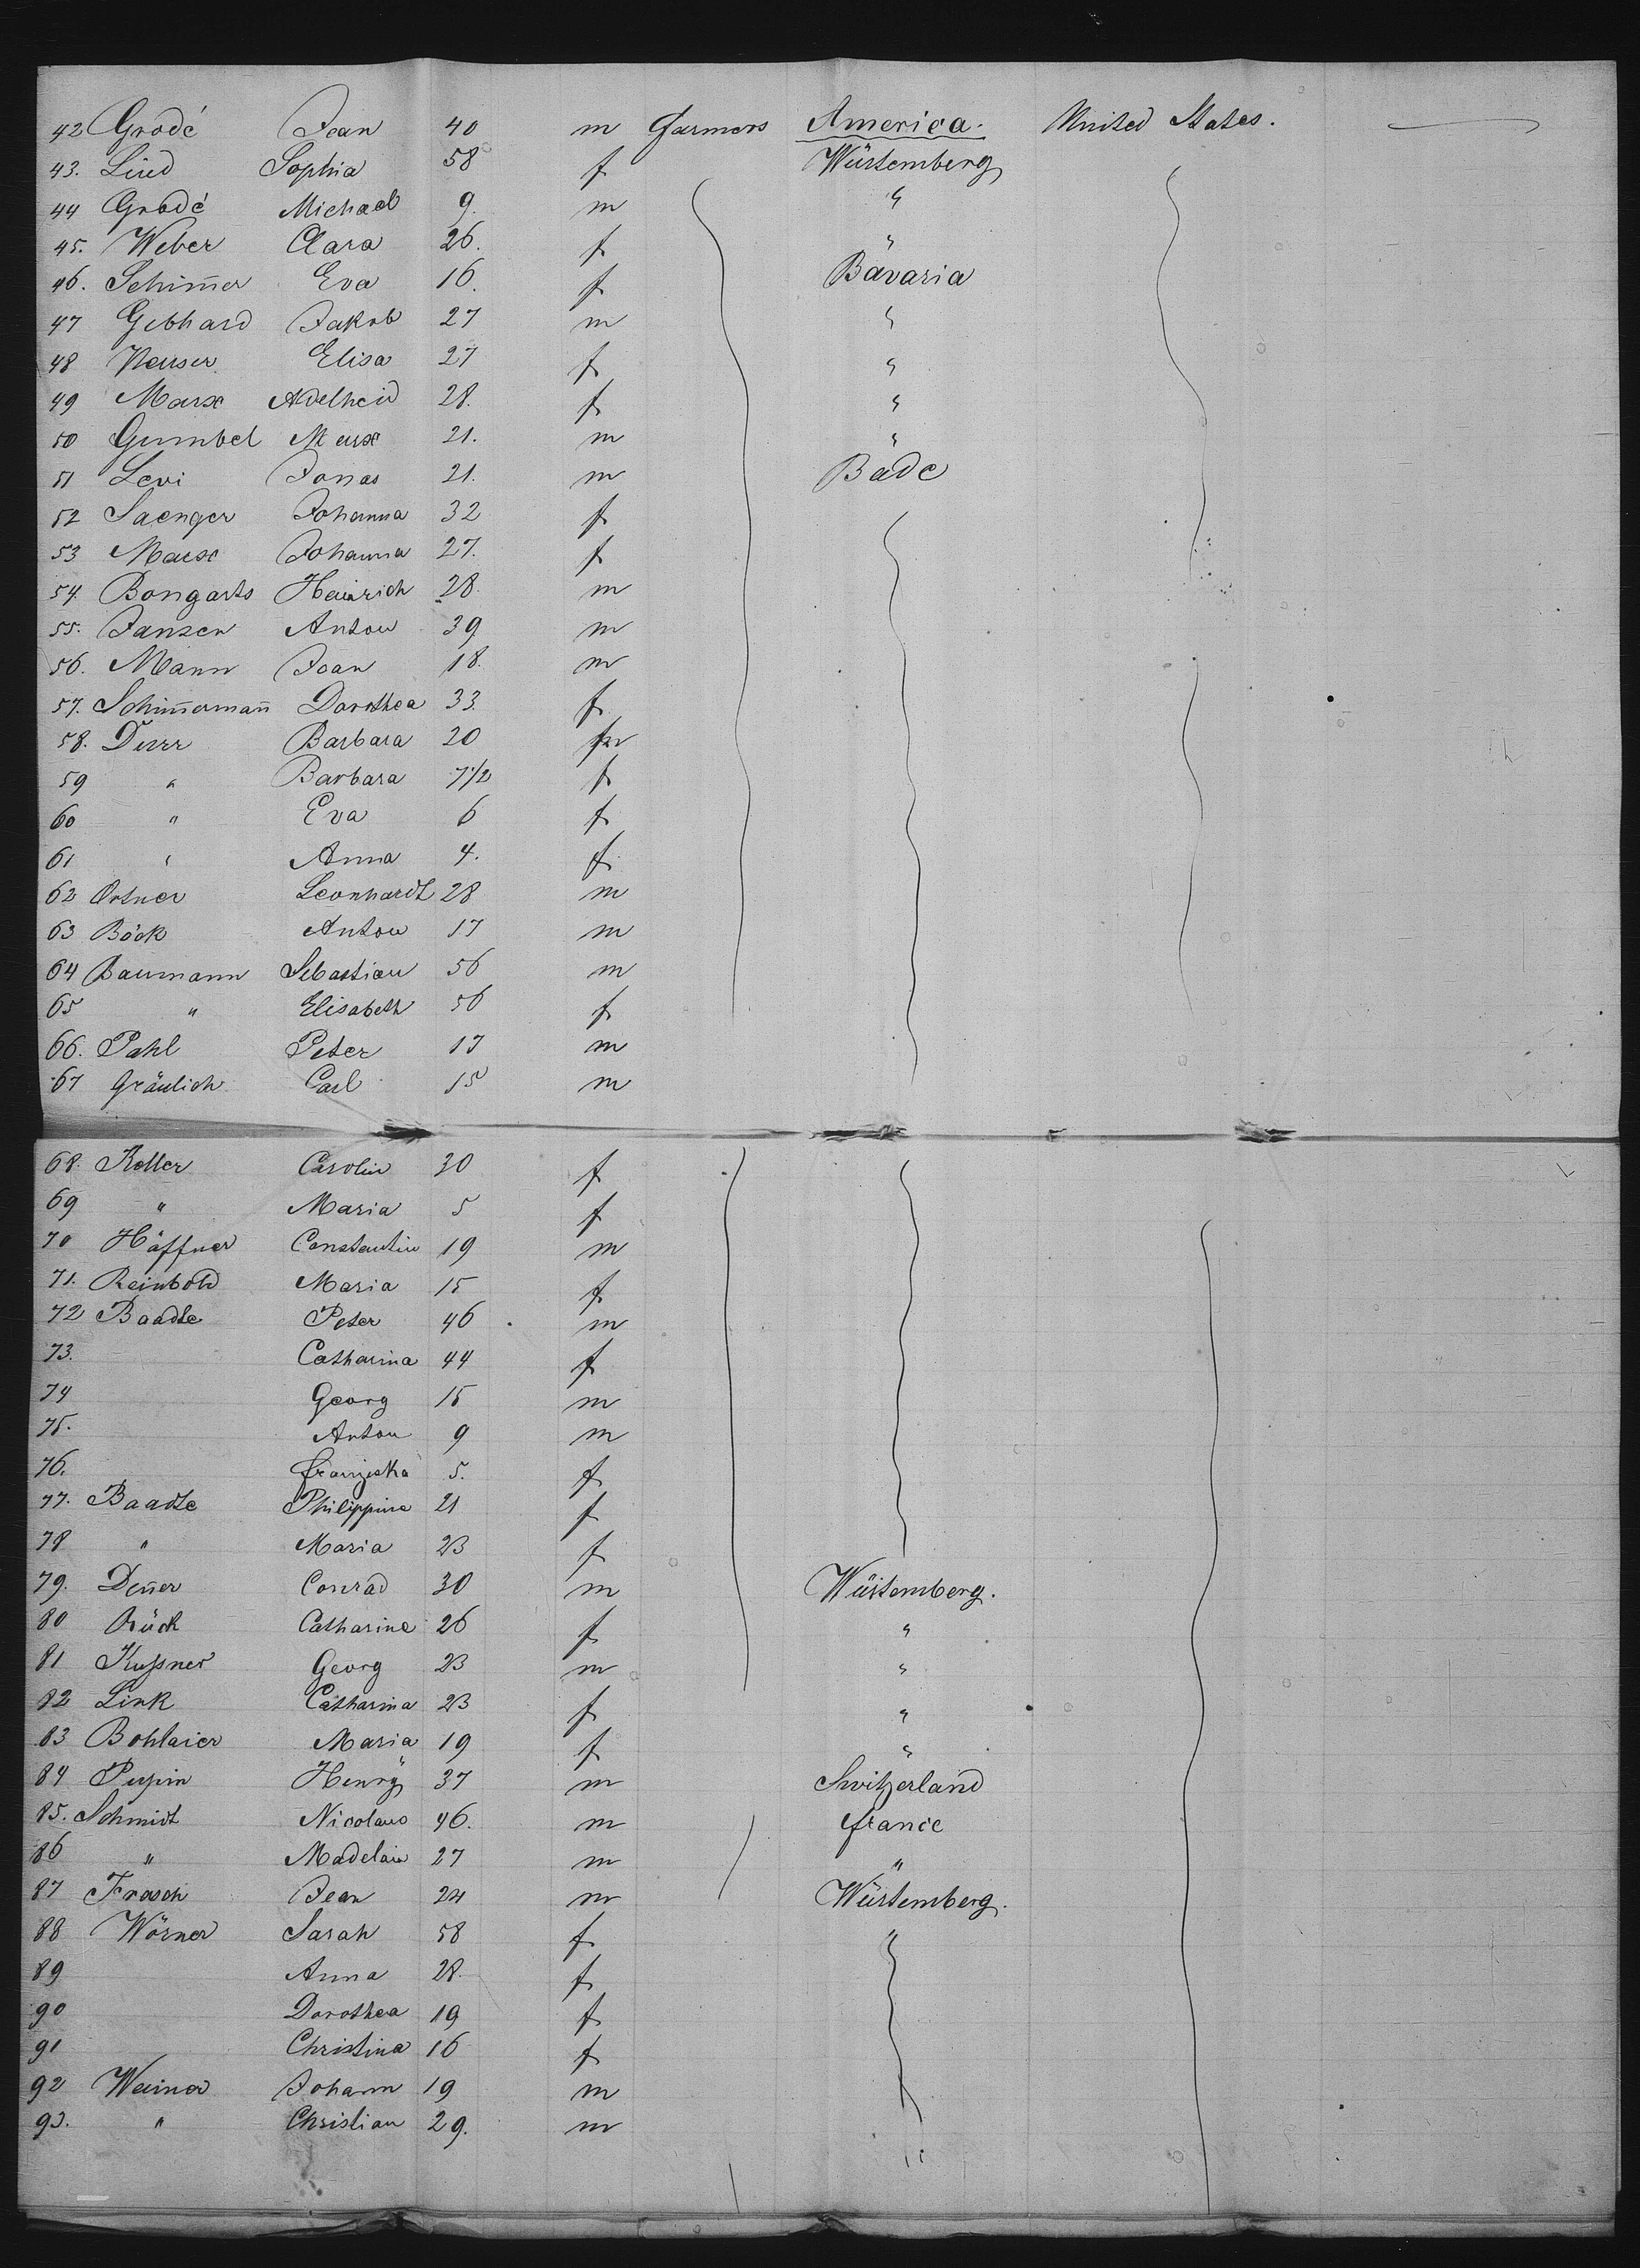 42 Grodé Jean 40 m Farmers America. United States.
43. Lind Sophia 58 f Würtemberg
44 Grodé Michael 9. m "
45. Weber Clara 26. f "
46. Schim̄er Eva 16. f Bavaria
47 Gebhard Jakob 27 m "
48 Elisa 27 f "
49 Marx Adelheid 28. f "
50 Gumbel Marx 21. m "
51 Levi Jonas 21. m Bade
52 Saenger Johanna 32 f
53 Marx Johanna 27. f
54. Bongarts Heinrich 28. m
55. Jansen Anton 39 m
56. Mann Jean 18. m
57. Schim̄erman̄ Dorothea 33. f
58. Durr Barbara 20 f
59 " Barbara 7 1/2 f
60 " Eva 6 f
61 " Anna 4. f
62 Ortner Leonhardt 28 m
63 Böck Anton 17 m
64 Baumann Sebastian 56 m
65 " Elisabeth 56 f
66. Pahl Peter 17 m
67 Gräulich Carl 15 m
68. Koller Carolin 30 f
69 " Maria 5 f
70 Häffner Constantin 19 m
71. Reinbold Maria 15 f
72 Baadte Peter 46 m
73. Catharina 44 f
74 Georg 15 m
75. Anton 9 m
76. Franziska 5. f
77. Baadte Philippine 21 f
78 " Maria 23 f
79. Den̄er Conrad 30 m Würtemberg.
80 Rück Catharine 26 f "
81 Kußner Georg 23 m "
82 Link Catharina 23 f "
83 Bohlaier Maria 19 f "
84 Henry 37 m Switzerland
85. Schmidt Nicolaus 46. m France
86 " Madelain 27 m "
87 Frasch Jean 24 m Würtemberg.
88 Wörner Sarah 58 f "
89 Anna 28. f
90 Dorothea 19 f
91 Christina 16 f
92 Weimer Johann 19 m
93. " Christian 29. m